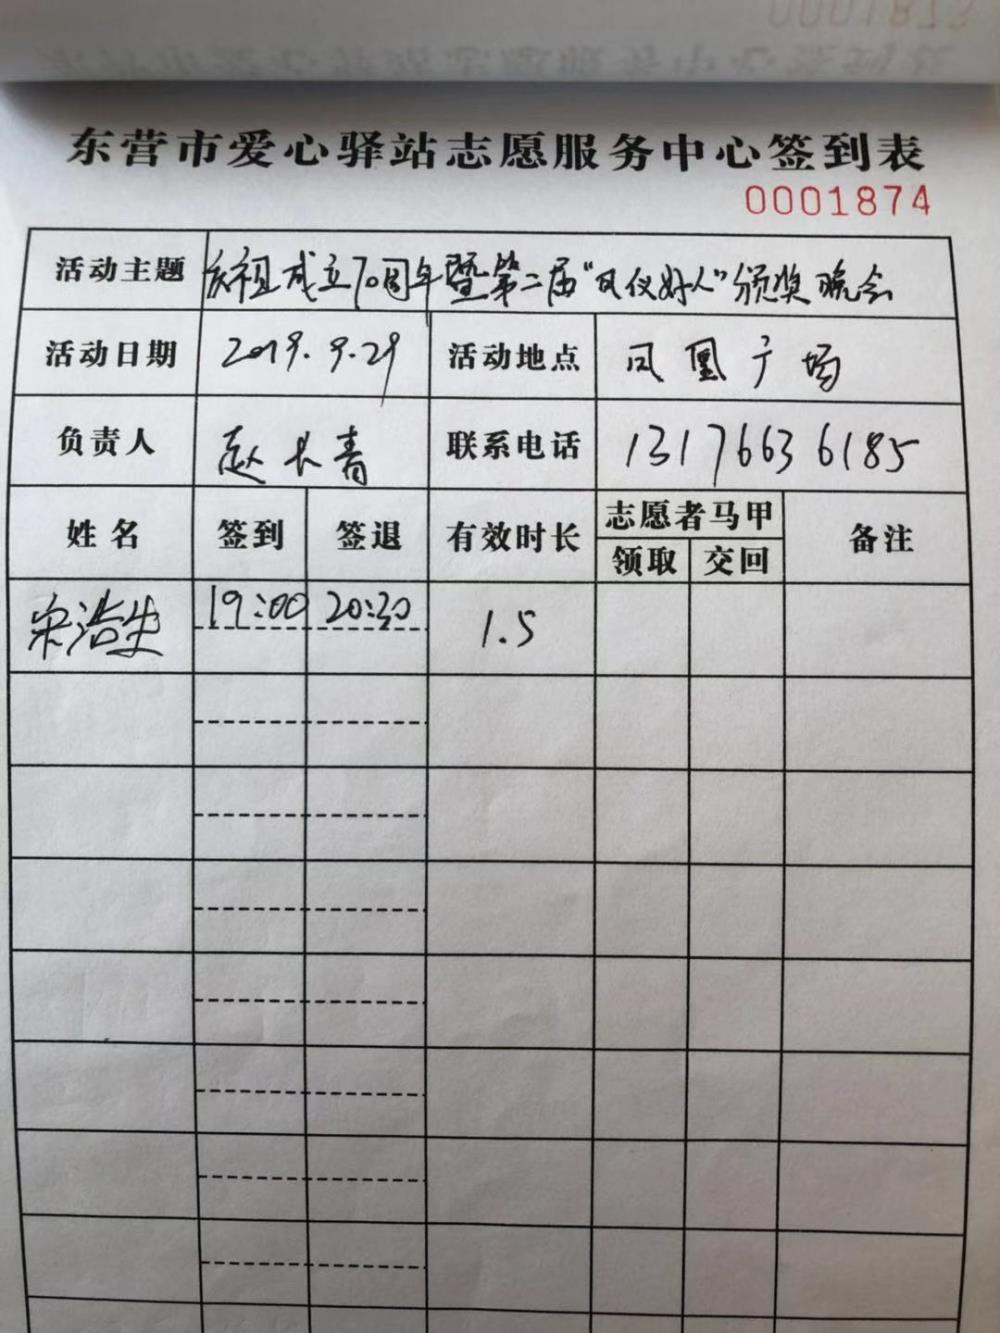 0001873
东营市爱心驿站志愿服务中心签到表
0001874
活动主题 庆祖成立70周年暨第二届“凤仪好人”颁奖晚会
活动日期 2019.9.29 活动地点 凤凰广场
负责人 赵长青 联系电话 13176636185
姓名 签到 签退 有效时长 志愿者马甲 备注
领取 交回
宋浩生 19:00 20:30 1.5